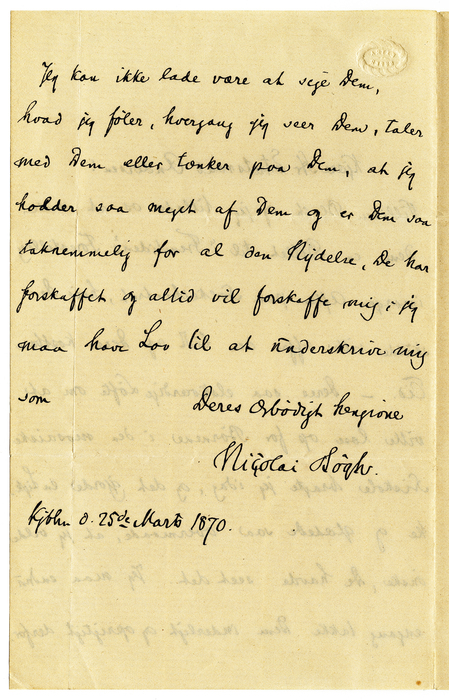 Jeg kan ikke lade være at sige Dem,
hvad jeg føler, hvergang jeg seer Dem, taler
med Dem eller tænker paa Dem, at jeg
holder saa meget af Dem og er Dem saa
taknemmelig for al den Nydelse, De har
forskaffet og altid vil forskaffe mig; jeg
maa have Lov til at underskrive mig
som
Deres ærbødigt hengivne
Nicolai Bøgh.
Kjbhn d. 25de Marts 1870.